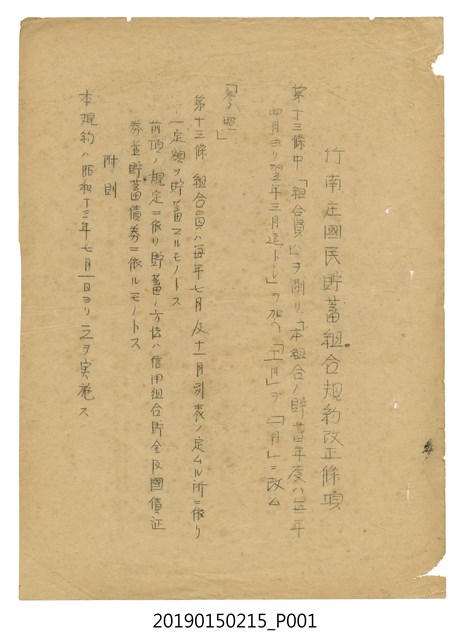 竹南庄國民貯蓄組合規約改正條項
第十三條中「組合員ハ」ヲ削リ「本組合ノ貯蓄年度ハ毎年
四月ヨリ翌年三月迄トシ」ヲ加ヘ「十一月」ヲ「一月」ニ改ム
「参照」
第十三條 組合員ハ毎年七月及十一月別表ノ定ムル所ニ依リ
一定額ヲ貯蓄スルモノトス
前項ノ規定ニ依リ貯蓄ノ方法ハ信用組合貯金及國債証
券並貯蓄債券ニ依ルモノトス
附則
本規約ハ昭和十三年七月一日ヨリ之ヲ実施ス
20190150215_P001